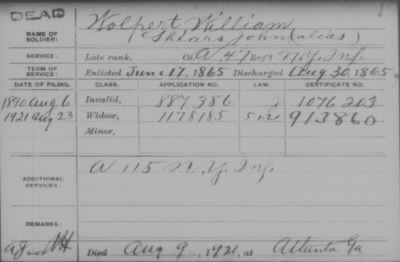 DEAD
NAME OF SOLDIER: Wolpert, William
(Shears John (alias)
SERVICE: Late rank, Co. A 47 Reg't N.Y. Inf.
TERM OF SERVICE: Enlisted June 17, 1865 Discharged Aug 30, 1865
DATE OF FILING. CLASS. APPLICATION NO. LAW. CERTIFICATE NO.
1890 Aug 6 Invalid, 887986 1076203
1921 Aug 23 Widow, 1178185 913860
Minor,
ADDITIONAL SERVICES: A 115 N.Y. Inf.
REMARKS:
Died Aug 9, 1921, at Atlanta Ga